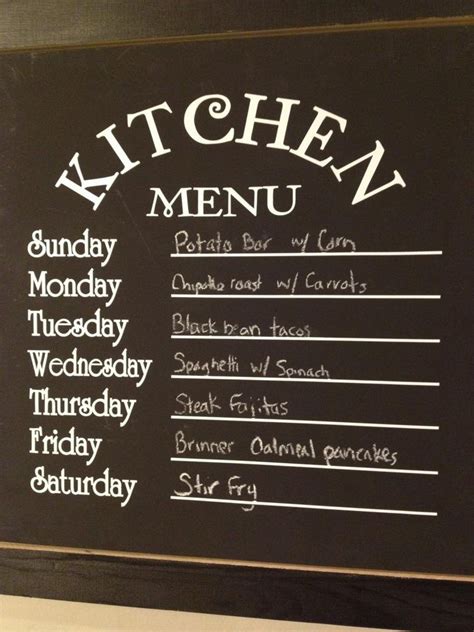 KITCHEN
MENU
Sunday Potato Bar w/ Corn
Monday Chipotle roast w/ Carrots
Tuesday Black bean tacos
Wednesday Spaghetti w/ Spinach
Thursday Steak Fajitas
Friday Brinner Oatmeal pancakes
Saturday Stir Fry